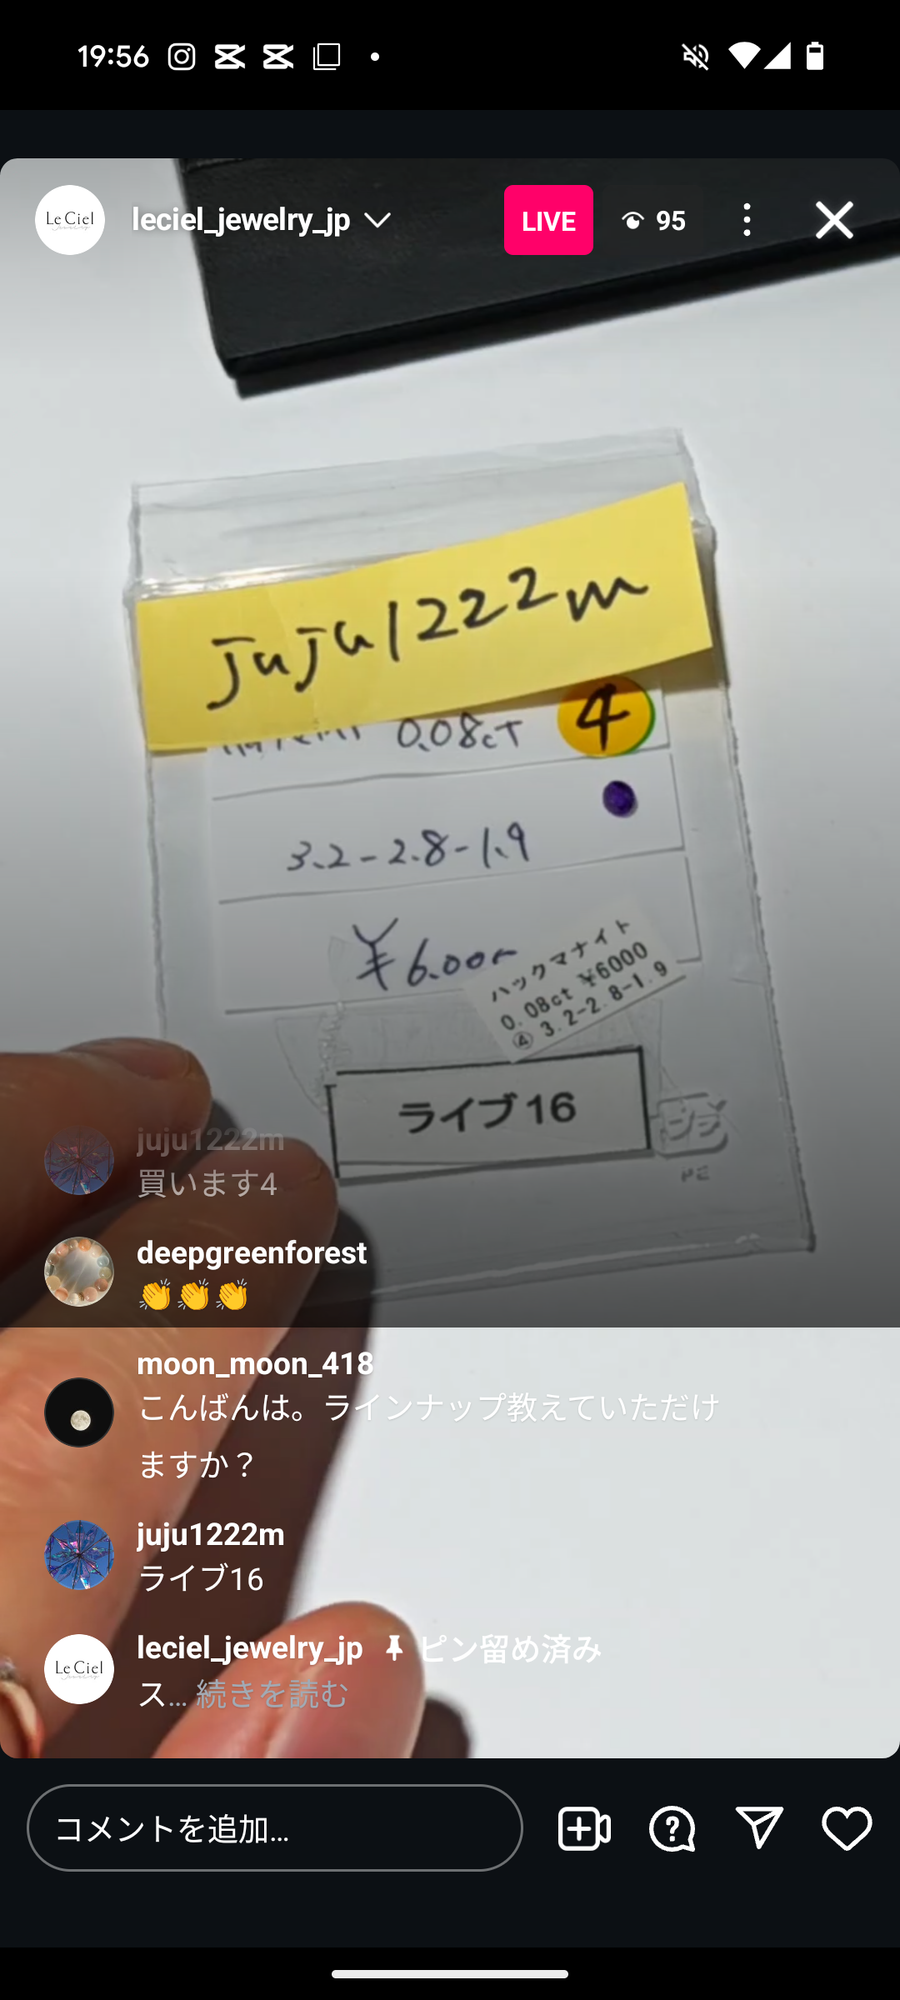 19:56
Le Ciel
leciel_jewelry_jp
LIVE
95
juju1222m
0.08ct
4
3.2-2.8-1.9
¥6.00
ハックマナイト
0.08ct ¥6000
④ 3.2-2.8-1.9
ライブ16
juju1222m
買います4
deepgreenforest
👏👏👏
moon_moon_418
こんばんは。ラインナップ教えていただけ
ますか？
juju1222m
ライブ16
Le Ciel
leciel_jewelry_jp ピン留め済み
ス... 続きを読む
コメントを追加...